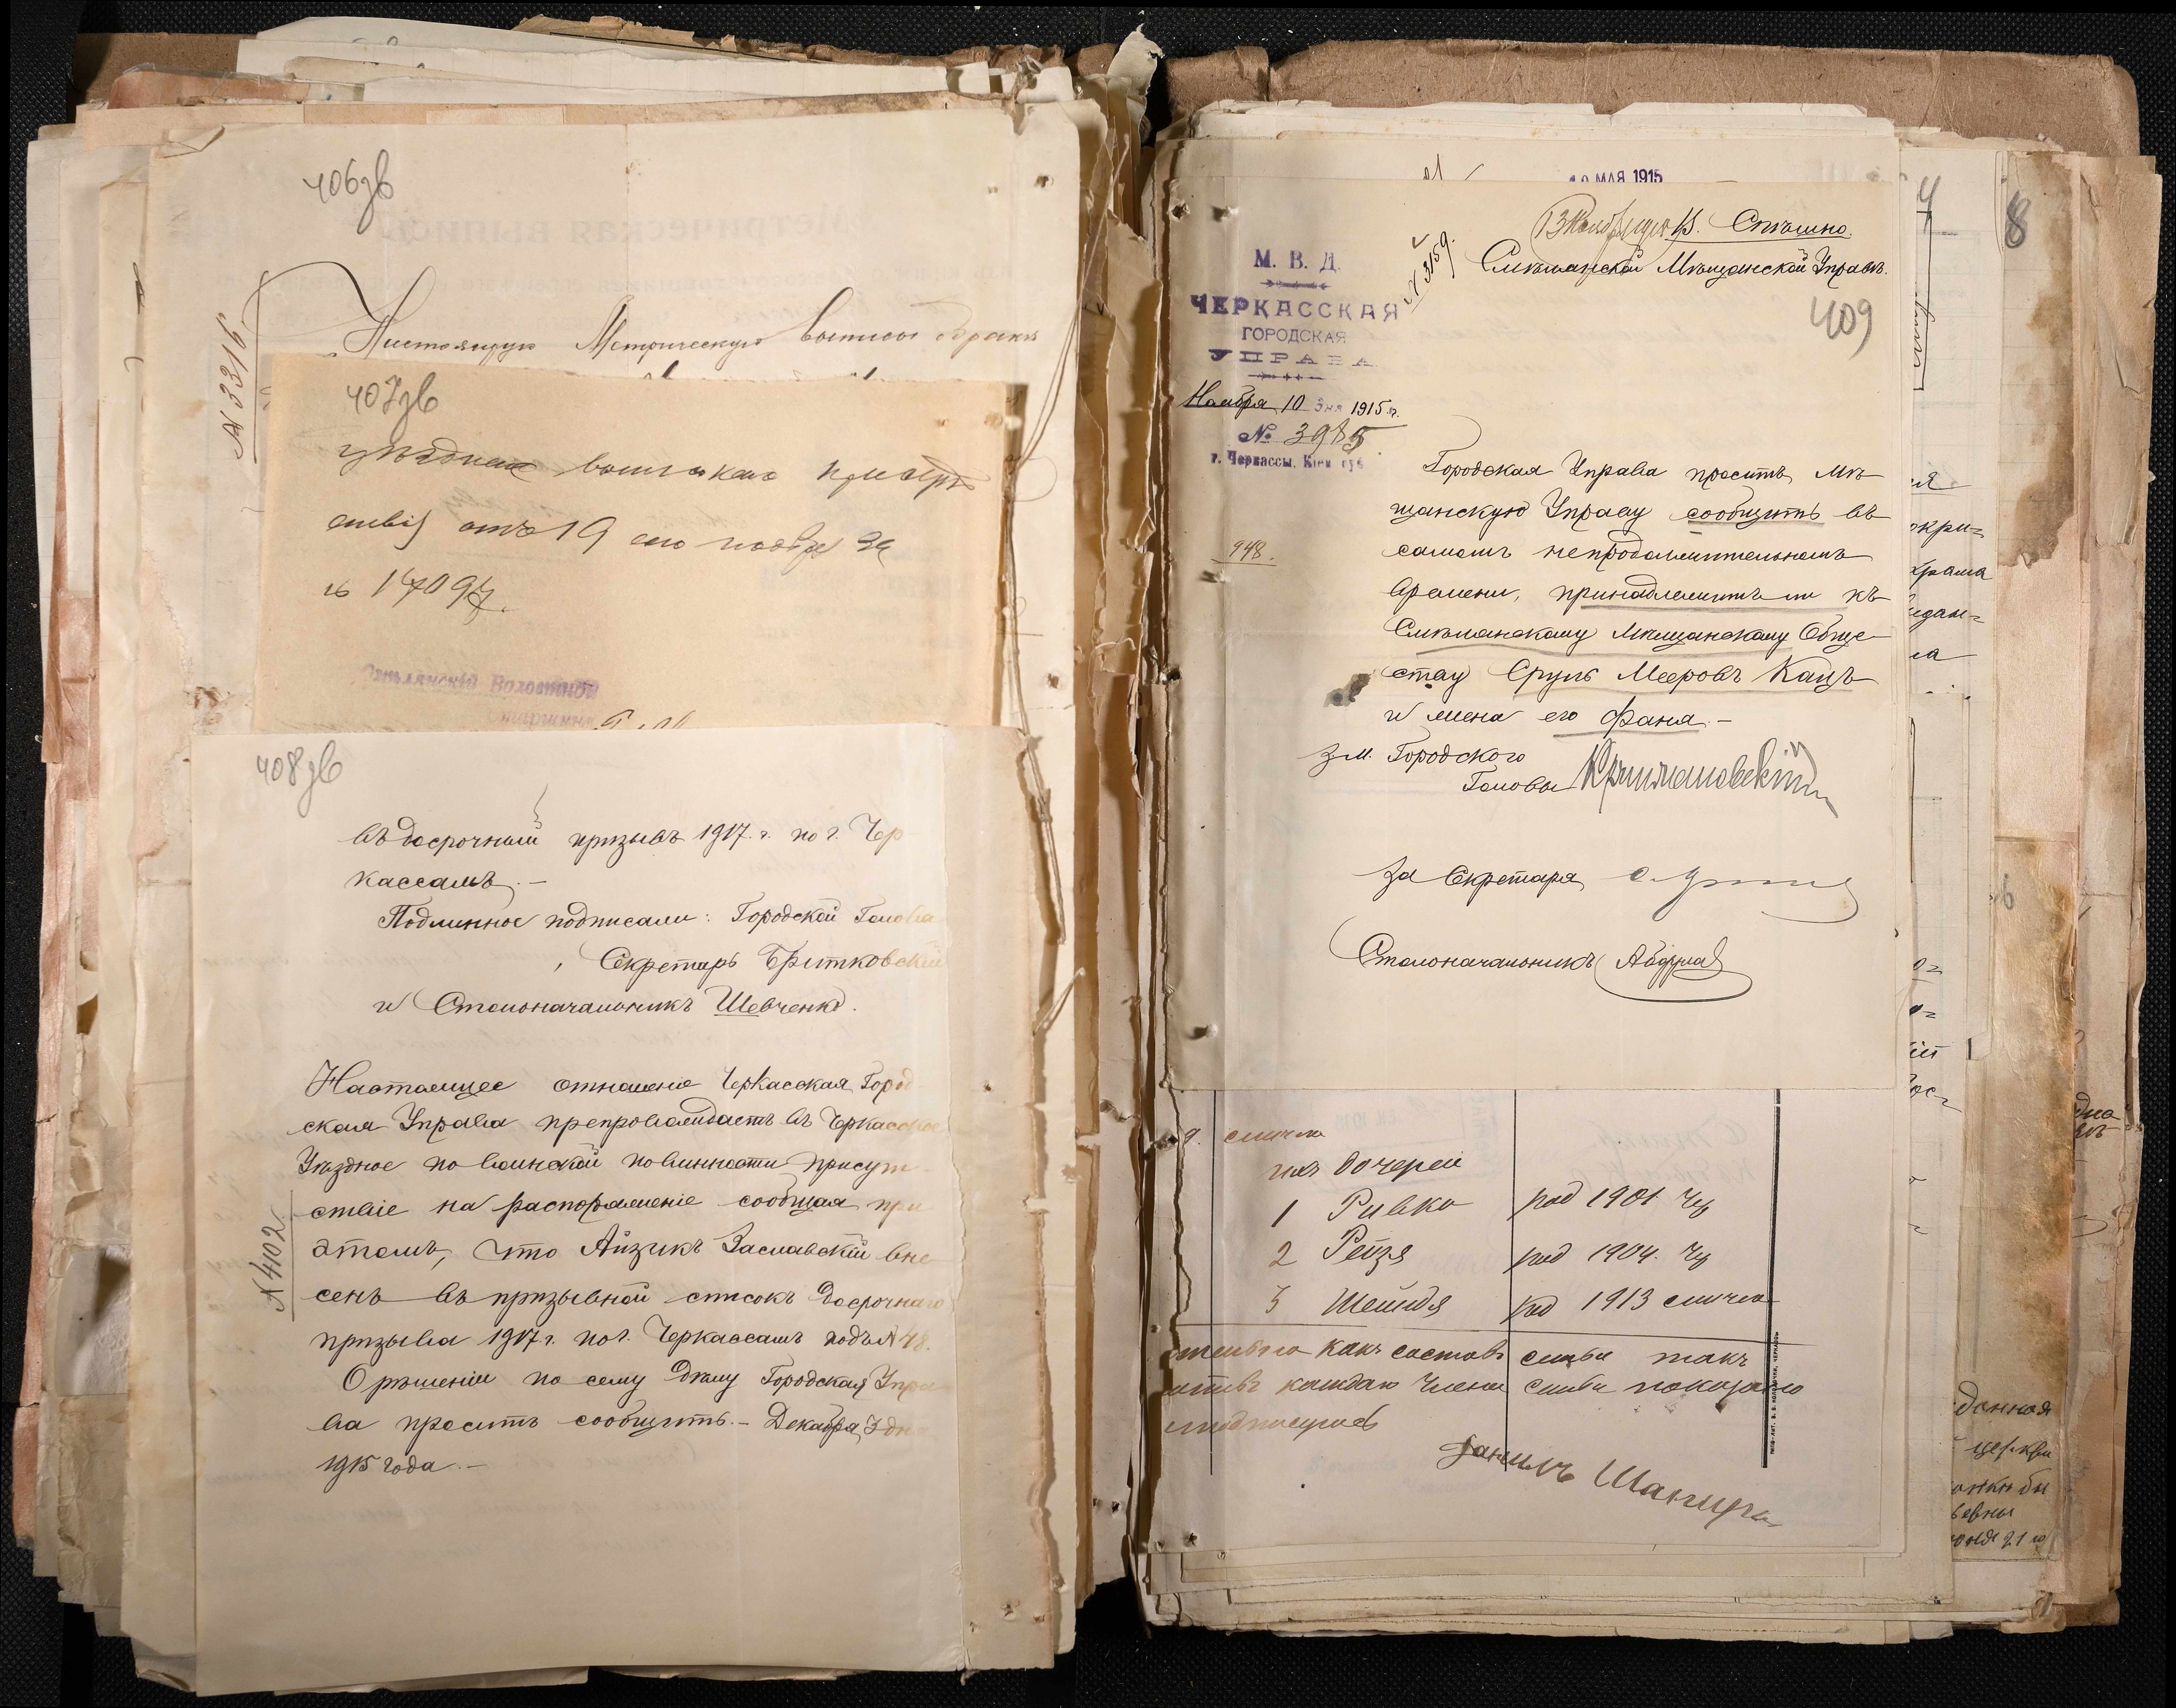 406 зв
№ 3316
Настоящую Метрическую выпись о бракѣ
407 зв
ствія отъ 19 сего ноября за
№ 17097.
Смѣлянскій Волостной
Старшина
408 зв
въ досрочный призывъ 1917 г. по г. Чер
кассамъ. –
Подлинное подписали: Городской Голова
, Секретарь Бритковскій
и Столоначальникъ Шевченко.
Настоящее отношеніе Черкасская Город
ская Управа препровождаетъ въ Черкасское
Уѣздное по воинской повинности присут
ствіе на распоряженіе сообщая при
этомъ, что Айзикъ Заславскій вне
сенъ въ призывной списокъ досрочнаго
призыва 1917 г. по г. Черкассамъ подъ № 48.
О рѣшеніи по сему дѣлу Городская Упра
ва проситъ сообщить. – Декабря 3 дня
1915 года. –
№ 4402
10 МАЯ 1915
В. Спѣшно.
Смѣлянской Мѣщанской Управѣ.
№ 3159.
409
М. В. Д.
ЧЕРКАССКАЯ
ГОРОДСКАЯ
УПРАВА
Ноября 10 дня 1915 г.
№ 3985
г. Черкассы, Кіев. губ.
948.
Городская Управа проситъ Мѣ
щанскую Управу сообщить въ
самомъ непродолжительномъ
времени, принадлежитъ ли къ
Смѣлянскому Мѣщанскому Обще–
ству Сруль Мееровъ Кацъ
и жена его Фаня. –
Зм. Городского
Головы
За Секретаря
Столоначальникъ
ихъ дочереи
1 Ривка род 1901. Чр
2 Рейзя род 1904. Чр
3 Шейндя род 1913 смила
какъ составъ семьи такъ
каждаго члена семьи показано
Шапиро
4
8
данная
церкви